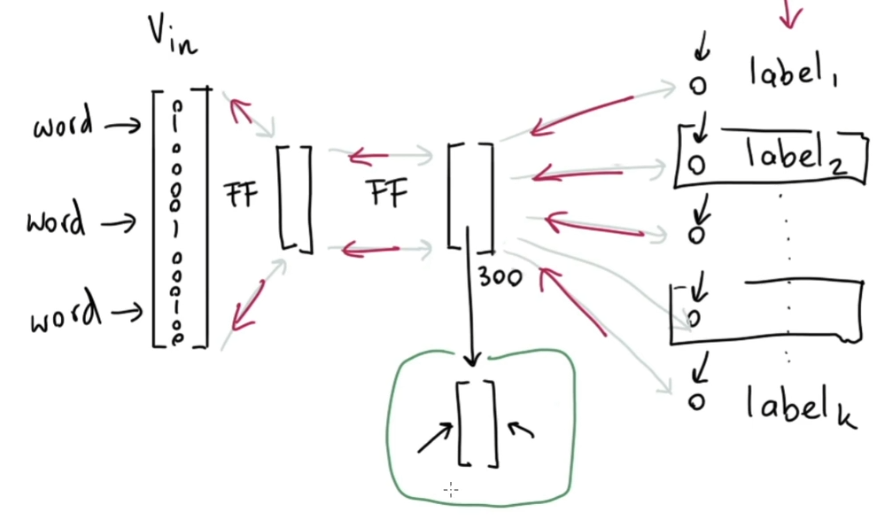 Vin
word
word
word
0
1
0
0
0
0
1
0
0
0
1
0
0
FF
FF
300
0 label1
0 label2
0
0
0 labelk